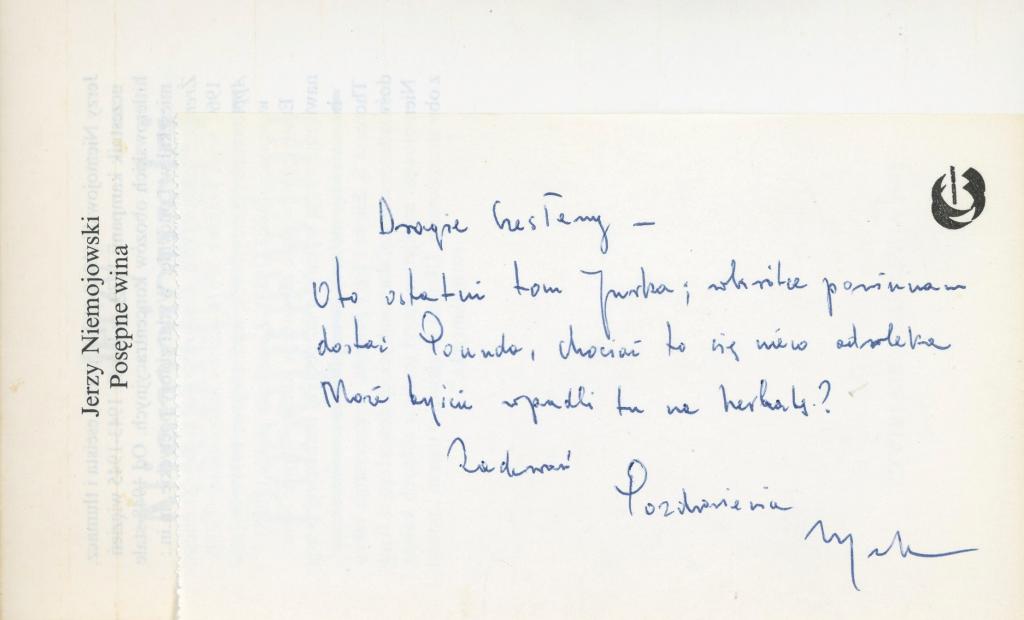 Jerzy Niemojowski
Posępne wina
Drogie
Oto ostatni tom Jurka; wkrótce powinnam
dostać Pounda, chociaż to się nieco odwleka
Może byście wpadli tu na herbatę?
Zadzwoń
Pozdrowienia